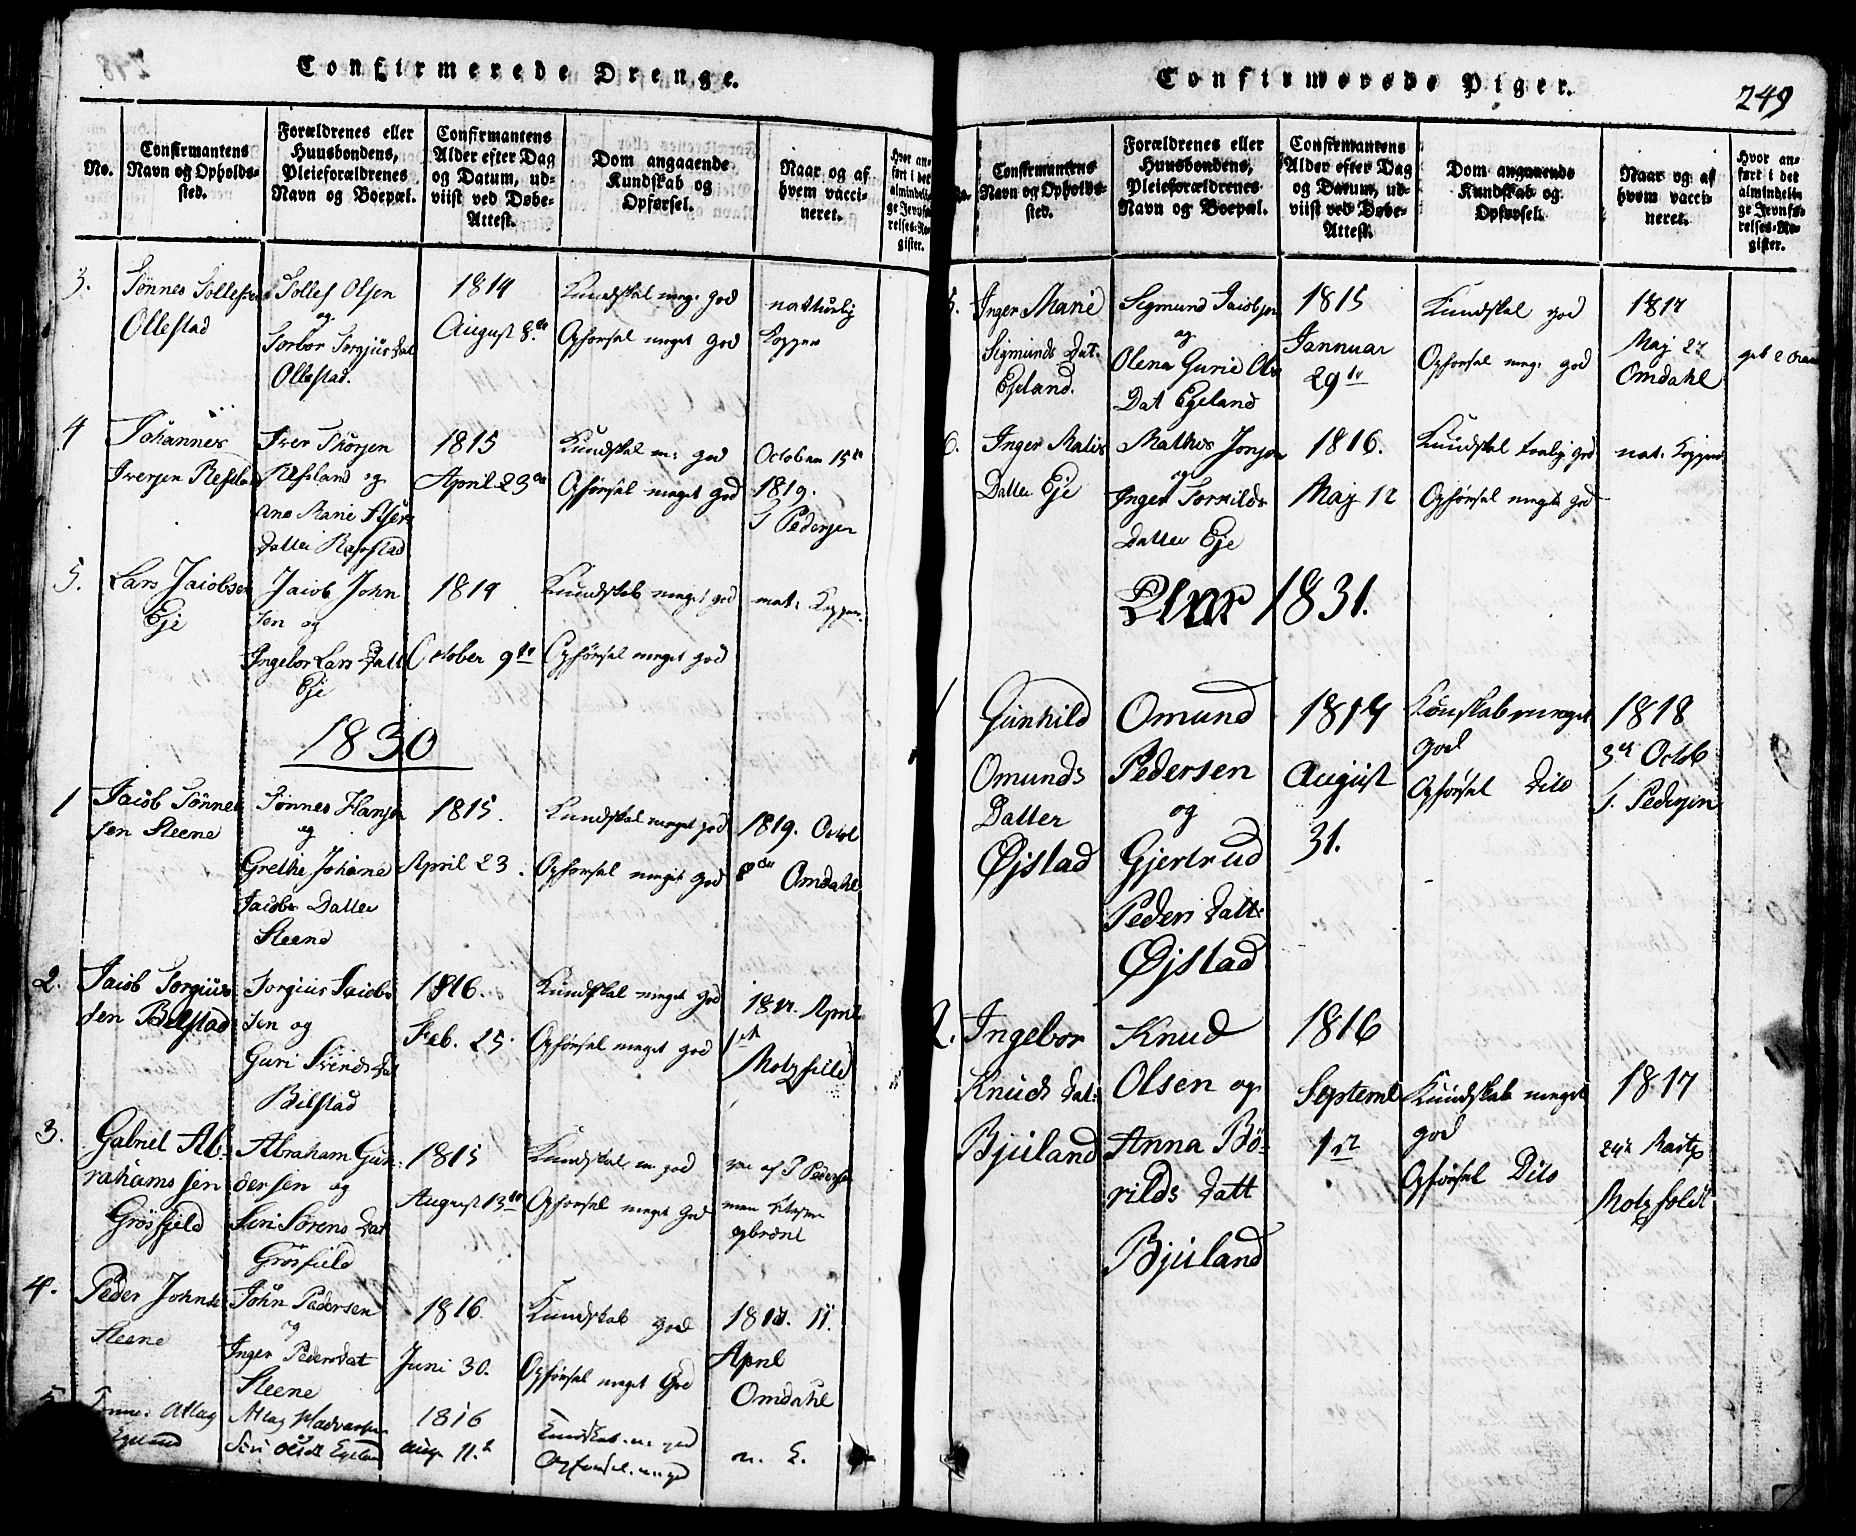 Confirmerede Drenge.
No.
Confirmantens
Navn og Opholds-
sted.
Forældrenes eller
Huusbondens,
Pleieforældrenes
Navn og Boepæl.
Confirmantens
Alder efter Dag
og Datum, ud-
viist ved Døbe-
Attest.
Dom angaaende
Kundskab og
Opførsel.
Naar og af
hvem vacci-
neret.
Hvor an-
ført i det
almindeli-
ge Jevnfø-
relses-Re-
gister.
3.
Tønnes Tollefsen
Ollestad
Tollef Olsen
og
Torbor Torgiusdat
Ollestad.
1814
August 8de
Kundskab meg: god
Opførsel meget god
natturlig
Kopper
4
Johannes
Iversen Refsland
Iver Thorsen
Refsland og
Ane Marie
Datter
1815
April 23de
Kundskab m: god
Opførsel meget god
October 15de
1819.
J Pedersen
5.
Lars Jacobsen
Eje
Jacob John
sen og
Ingebor Lars Datt
Eje
1814
October 9de
Kundskab meget god
Opførsel meget god
nat: Kopper.
1830
1
Jacob Tønne
sen Steene
Tønnes Hansen
og
Grethe Johane
Jacobs Datter
Steene
1815.
April 23.
Kundskab meget god
Opførsel meget god
1819. Octob
8de Omdahl
2.
Jacob Torgius
sen Bilstad
Torgius Jacob
sen og
Guri Svends Dat
Bilstad
1816.
Feb. 25.
Kundskab meget god
Opførsel meget god
1817. April
1st
Motzfeld
3.
Gabriel Ab-
rahams sen
Grösfjeld
Abraham Gun-
dersen og
Siri Sörens Dat
Grösfield
1815
August 13de
Kundskab m god
Opførsel meget god
vac af P Pedersen
men
4.
Peder Johnse
Steene
John Pedersen
og
Inger Pedersdat
Steene
1816
Juni 30.
Kundskab god
Opførsel meget god
11.
April
Omdahl
5
Tønne. Atlag
Egeland
Atlag Hadvarsen
Siri Olsdt Egeland
1816
Aug. 11.
Kundskab. m god
Opførsel. m. gd
n. K.
Confirmerede Piger.
249
No.
Confirmantens
Navn og Opholds-
sted.
Forældrenes eller
Huusbondens,
Pleieforældrenes
Navn og Boepæl.
Confirmantens
Alder efter Dag
og Datum, ud-
viist ved Døbe-
Attest.
Dom angaaende
Kundskab og
Opførsel.
Naar og af
hvem vacci-
neret.
Hvor an-
ført i det
almindeli-
ge Jevnfø-
relses-Re-
gister.
5.
Inger Marie
Sigmunds Dat.
Egeland.
Sigmund Jacobsen
og
Olena Gurie Ols
Dat Egeland
1815
Jannuar
29de
Kundskab god
Opførsel meg: god
1817
Maj 27
Omdahl
6.
Inger Malis
Datter Eje
Mathis Jonsen
og
Inger Tornilds
Datter Eje
1816.
Maj 12
Kundskab god
Opførsel meget god
nat. Kopper
Aar 1831.
1
Gunhild
Omunds
Datter
Øjstad
Omund
Pedersen
og
Gjertrud
Peders Datt:
Øjstad
1814
August
31.
Kundskab meget
god
Opførsel Dito
1818
3de Octob
J. Pedersen
2.
Ingebor
Knuds Dat:
Bjuland
Knud
Olsen og
Anna Bö-
rilds Datt
Bjuland
1816
Septemb
1st
Kundskab meget
god
Opførsel Dito
1817
Motzfeldt